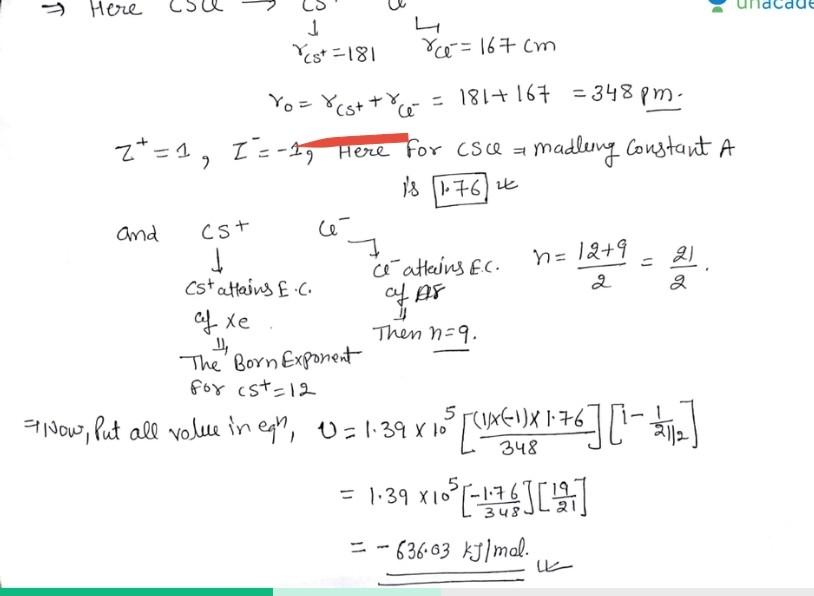 ⇒ Here CsCl → Cs⁺ Cl⁻
↓ ↳
r_Cs⁺ = 181 r_Cl⁻ = 167 cm
r₀ = r_Cs⁺ + r_Cl⁻ = 181 + 167 = 348 pm.
Z⁺ = 1, Z⁻ = -1, Here For CsCl ⇒ madleung Constant A
is 1.76
and Cs⁺ Cl⁻
Cs⁺ attains E.C.
of Xe
⇓
The Born Exponent
For Cs⁺ = 12
Cl⁻ attains E.C.
of Ar
⇓
Then n = 9.
n = (12+9)/2 = 21/2.
⇒ Now, Put all value in eqⁿ, U = 1.39 × 10⁵ [(1)×(-1)×1.76 / 348] [1 - 1/(21/2)]
= 1.39 × 10⁵ [-1.76/348] [19/21]
= -636.03 kJ/mol.